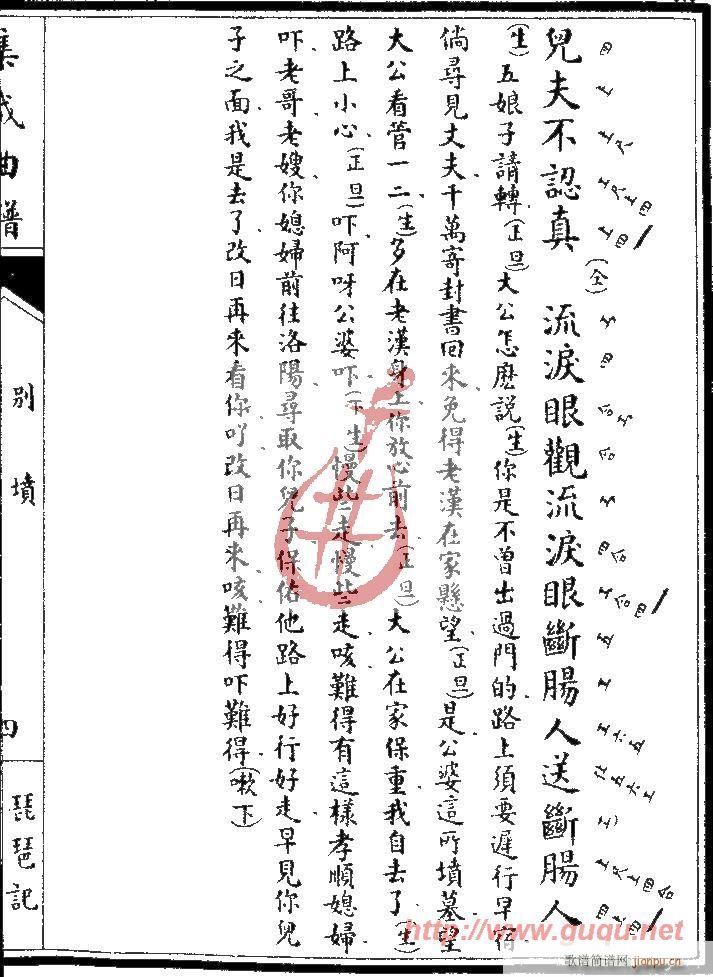 兒夫不認真 (仝)流淚眼觀流淚眼斷腸人送斷腸人
(生)五娘子請轉(正旦)大公怎麽說(生)你是不曾出過門的路上須要遲行早宿
倘尋見丈夫千萬寄封書回來免得老漢在家懸望(正旦)是公婆這所墳墓望
大公看管一二(生)多在老漢身上你放心前去(正旦)大公在家保重我自去了(生)
路上小心(正旦)吓阿呀公婆吓(下生)慢些走慢些走咳難得有這樣孝順媳婦
吓老哥老嫂你媳婦前往洛陽尋取你兒子保佑他路上好行好走早見你兒
子之面我是去了改日再來看你吖改日再來咳難得吓難得(嗽下)
集成曲譜
別墳
四
琵琶記
http://www.guqu.net
歌谱简谱网
jianpu.cn